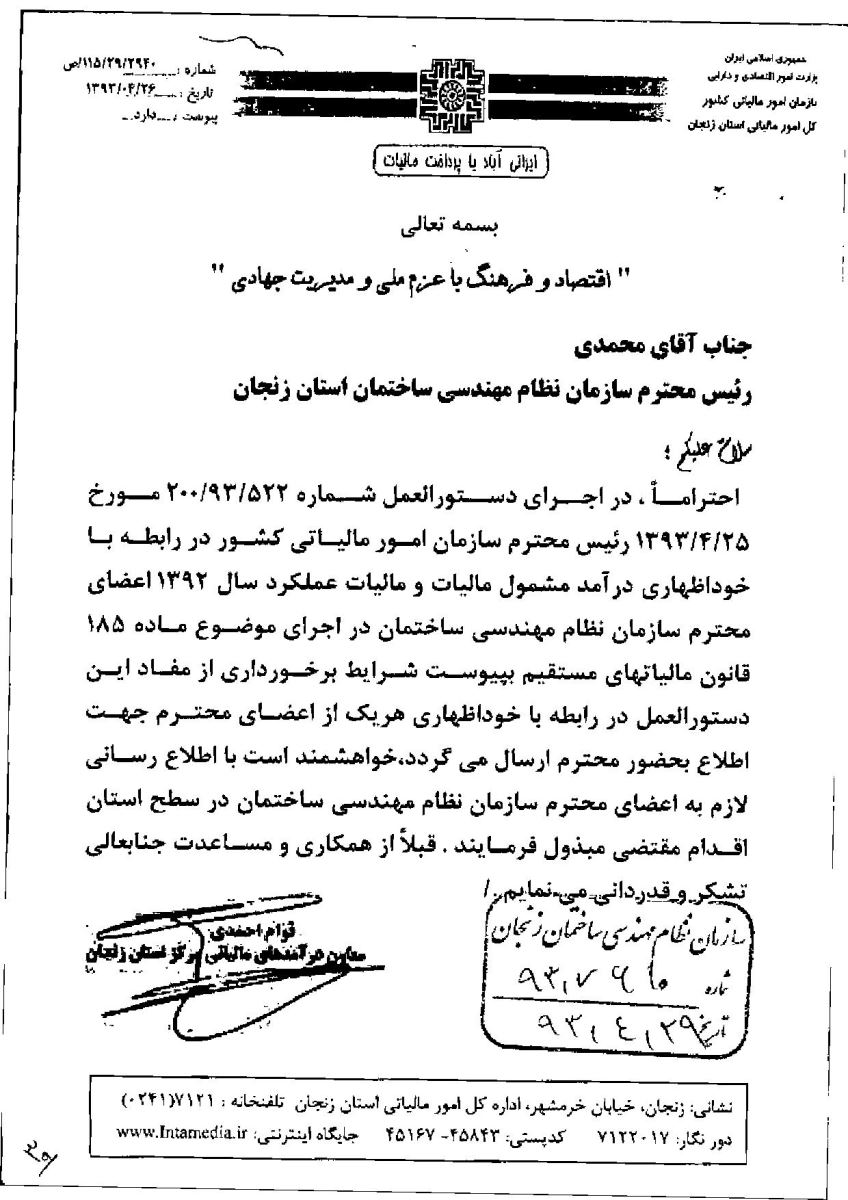 جمهوری اسلامی ایران
وزارت امور اقتصادی و دارایی
سازمان امور مالیاتی کشور
کل امور مالیاتی استان زنجان
شماره : ۱۱۵/۲۹/۲۹۴۰/ص
تاریخ : ۱۳۹۳/۰۴/۲۶
پیوست : دارد
ایرانی آباد با پرداخت مالیات
بسمه تعالی
" اقتصاد و فرهنگ با عزم ملی و مدیریت جهادی "
جناب آقای محمدی
رئیس محترم سازمان نظام مهندسی ساختمان استان زنجان
سلام علیکم ؛
احتراماً ، در اجرای دستورالعمل شماره ۲۰۰/۹۳/۵۲۲ مورخ
۱۳۹۳/۴/۲۵ رئیس محترم سازمان امور مالیاتی کشور در رابطه با
خوداظهاری درآمد مشمول مالیات و مالیات عملکرد سال ۱۳۹۲ اعضای
محترم سازمان نظام مهندسی ساختمان در اجرای موضوع ماده ۱۸۵
قانون مالیاتهای مستقیم بپیوست شرایط برخورداری از مفاد این
دستورالعمل در رابطه با خوداظهاری هریک از اعضای محترم جهت
اطلاع بحضور محترم ارسال می گردد،خواهشمند است با اطلاع رسانی
لازم به اعضای محترم سازمان نظام مهندسی ساختمان در سطح استان
اقدام مقتضی مبذول فرمایند . قبلاً از همکاری و مساعدت جنابعالی
تشکر و قدردانی می نمایم ./
قوام احمدی
معاون درآمدهای مالیاتی مرکز استان زنجان
سازمان نظام مهندسی ساختمان زنجان
شماره
تاریخ ۹۳/۴/۲۹
نشانی: زنجان، خیابان خرمشهر، اداره کل امور مالیاتی استان زنجان تلفنخانه : ۷۱۲۱(۰۲۴۱)
دور نگار: ۷۱۲۲۰۱۷ کدپستی: ۴۵۸۴۳- ۴۵۱۶۷ جایگاه اینترنتی: www.Intamedia.ir